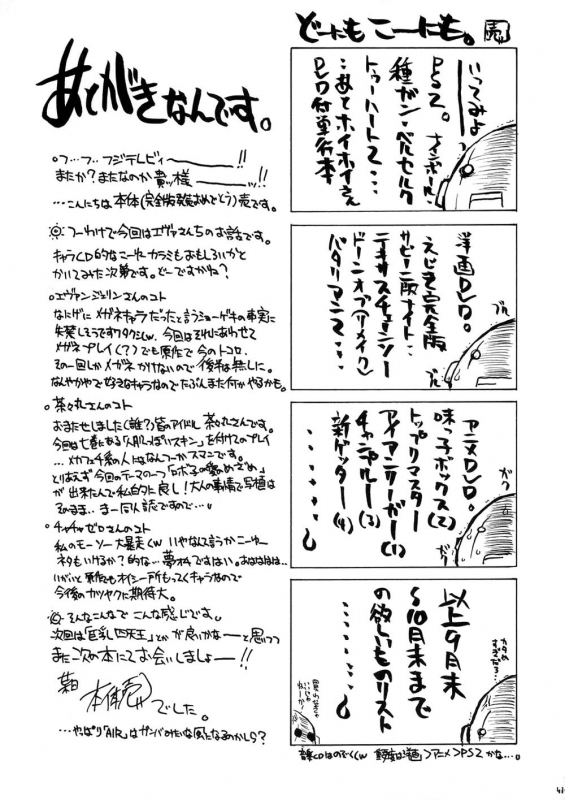 あとがきなんです。
。フ…ブ…フジテレビィーーー!!
またか？またなのか貴ッ様ーーーッ!!
…こんにちは本体(完全版発売おめでとう)売です。
つーわけで今回はエヴァさんちのお話です。
キャラCD的なこーゆーカラミもおもしろいかと
かいてみた次第です。どーですかね？
。エヴァンジェリンさんのコト
なにげにメガネキャラだったと言うショーゲキの事実に
失禁しそうですワタクシw。今回はそれにあわせて
メガネプレイ(？)でも原作で今のトコロ、
その一回しかメガネかけないので後半は無しに。
なんやかやで好きなキャラなのでたぶんまた何かやるかも。
。茶々丸さんのコト
おまたせしました(誰？)皆のアイドル茶々丸さんです。
今回は七巻にある「人肌っぽいスキン」を付けてのプレイ
…メカフェチ系の人にはなんつーかスマンです。
とりあえず今回のテーマの一つ「ロボ子の愛のめざめ」
が出来たんで私的に良し！大人の事情で写植は
そのまま、まー同人誌ですので…。
。チャチャゼロさんのコト
私のモーソー大暴走くw いやなんて言うかこーゆー
ネタもいけるか？的な…夢オチですはい。おはははは…
いがいと原作もオイシー所もってくキャラなので
今後のカツヤクに期待大。
そんなこんなでこんな感じです。
次回は「巨乳四天王」とかが良いかなーと思いつつ
また次の本にてお会いしましょー!!
本体売
でした。
…やっぱり「AIR」はガンバのみたいな風になるのかしら？
どーにもこーにも。 売
いってみよーーー
PS2。ナインボール、
種ガン・ベルセルク
トゥーハート2…
…あとホイホイさん
DVD付単行本
洋画DVD。
えじき完全版
サビーニ版ナイト…
テキサスチェーンソー
ドーンオブ(リメイク)
バタリアン2…
ブル
ブル
アニメDVD。
味っ子ボックス(2)
トップリマスター
アイアンリーガー(1)
チャンネルー(3)
新ゲッター(4)
……
ガク
ガク
以上9月末
〜10月末まで
の欲しいものリスト
……
音楽CDはのぞくくw 優先度は洋画〉アニメ〉PS2かな…。
41